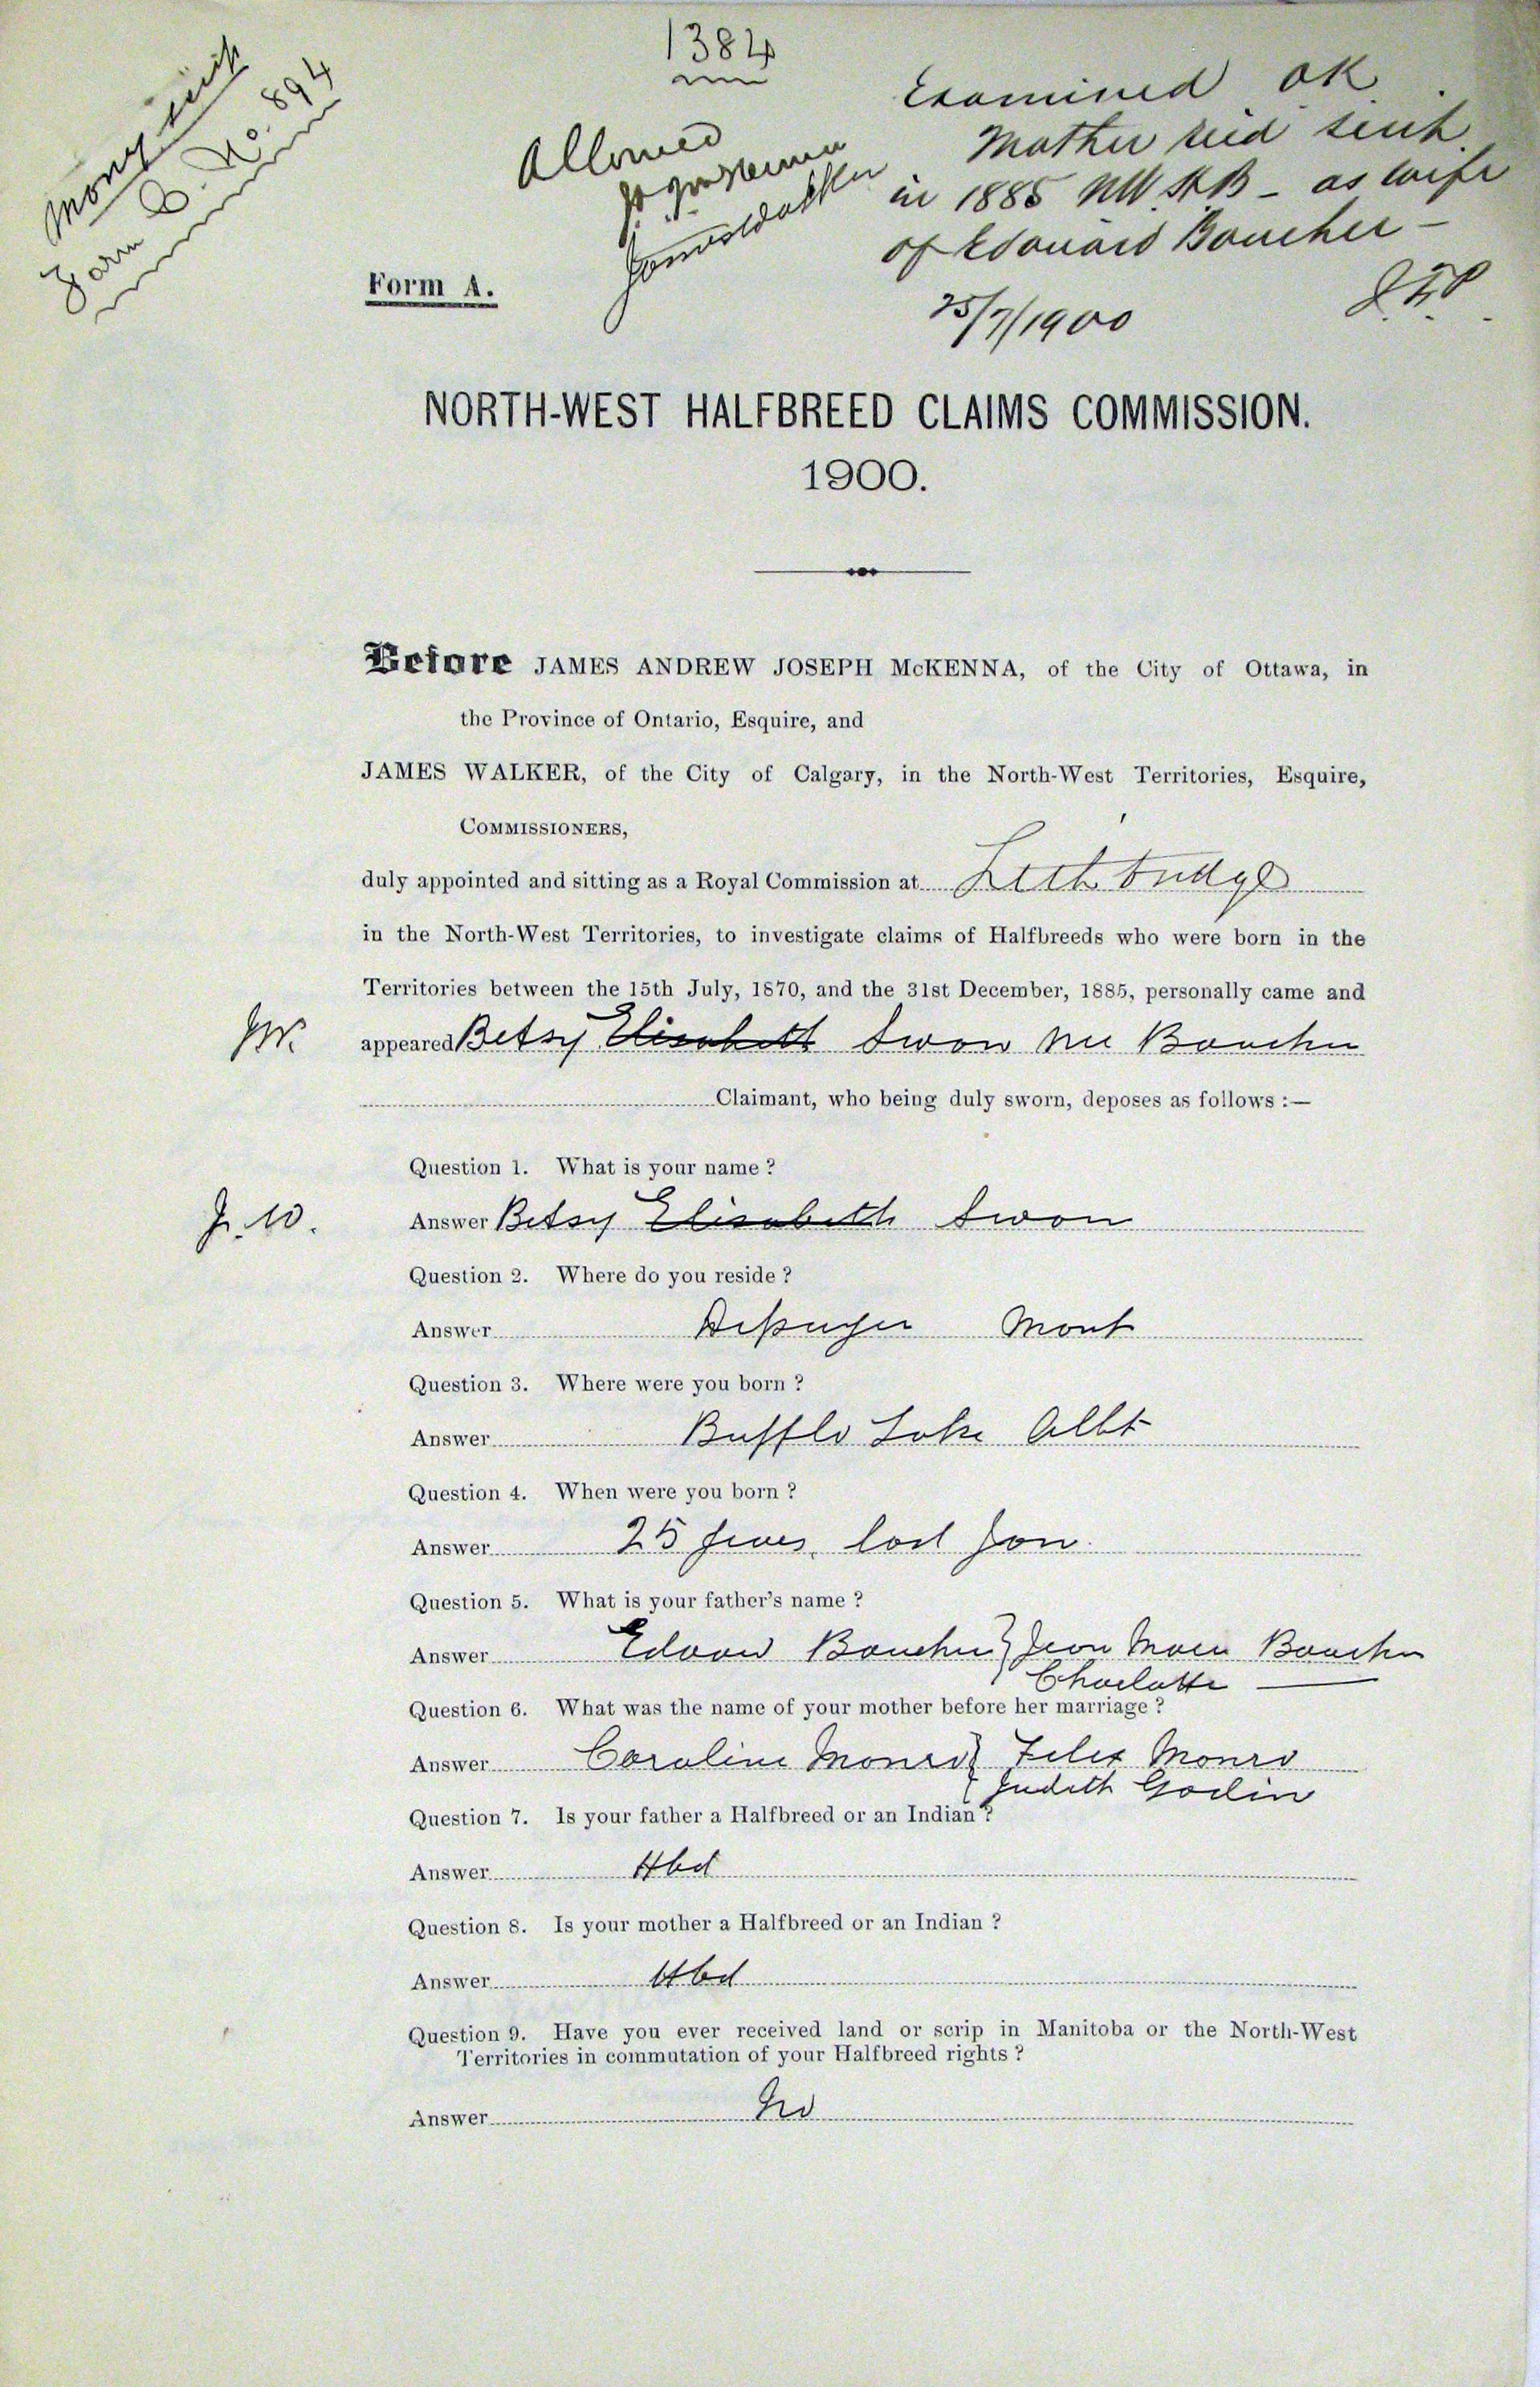 1384
Money scrip
Form D. No. 894
Allowed
J A J McKenna
James Walker
Examined OK
Mother recd scrip
in 1885 NW HB - as wife
of Edouard Boucher -
25/7/1900
Form A.
NORTH-WEST HALFBREED CLAIMS COMMISSION.
1900.
Before JAMES ANDREW JOSEPH McKENNA, of the City of Ottawa, in
the Province of Ontario, Esquire, and
JAMES WALKER, of the City of Calgary, in the North-West Territories, Esquire,
COMMISSIONERS,
duly appointed and sitting as a Royal Commission at Lethbridge
in the North-West Territories, to investigate claims of Halfbreeds who were born in the
Territories between the 15th July, 1870, and the 31st December, 1885, personally came and
JW. appeared Betsy Elisabeth Swan nee Boucher
Claimant, who being duly sworn, deposes as follows :—
Question 1. What is your name ?
J.W. Answer Betsy Elisabeth Swan
Question 2. Where do you reside ?
Answer Dupuyer Mont
Question 3. Where were you born ?
Answer Bufflo Lake Albt
Question 4. When were you born ?
Answer 25 years last Jan.
Question 5. What is your father's name ?
Answer Edward Boucher } Jean Marie Boucher
Charlotte —
Question 6. What was the name of your mother before her marriage ?
Answer Caroline Monro } Felix Monro
Judith Godin
Question 7. Is your father a Halfbreed or an Indian ?
Answer Hbd
Question 8. Is your mother a Halfbreed or an Indian ?
Answer Hbd
Question 9. Have you ever received land or scrip in Manitoba or the North-West
Territories in commutation of your Halfbreed rights ?
Answer No